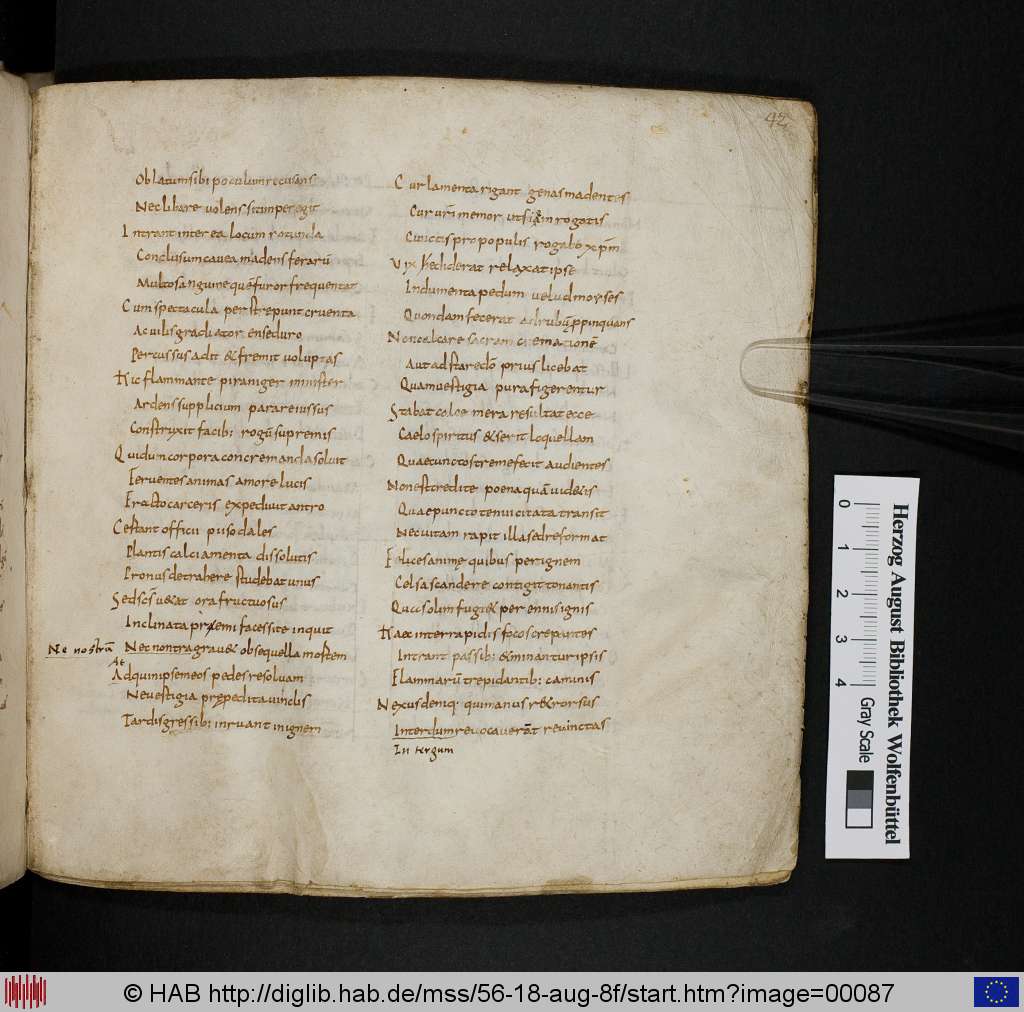 42
Oblatum sibi poculum recusans
Nec libare volens sitim peregit
Intrant interea locum rotunda
Conclusum cavea madens ferarū
Multo sanguine quē furor frequentat
Cum spectacula perstrepunt cruenta
Ac vilis gradiator ense duro
Percussus adit & fremit voluptas
Hic flammante piraniger minister
Ardens supplicium parare iussus
Construxit facib: rogū supremis
Qui dum corpora concremanda soluit
Ferventes animas amore lucis
Fracto carceris expedivit antro
Certant officii pii sodales
Plantis calciamenta dissolutis
Pronus detrahere studebat unus
Sed scs uetat ora fructuosus
Inclinata praemi facessite inquit
Ne nostrū
Nec nontra grau& obsequella mostem
At
Adquin ipse meos pedes resoluam
Ne uestigia prępedita uinclis
Tardis gressib: inruant in ignem
Cur lamenta rigant genas madentes
Cur uri memor ut siam rogatis
Cunctis pro populis rogabo xpm
Vix hec diderat relaxat ipse
Indumenta pedum uelud moyses
Quondam fecerat ad rubū ppinquans
Non calcare sacram cremationē
Aut adstare dō prius licebat
Quam uestigia pura figerentur
Stabat coloe mera resultat ecce
Caelo spiritus & serit loquellam
Quae cunctos tremefecit audientes
Non est credite poena quā uid&is
Quae puncto tenui citata transit
Nec uitam rapit illa sed reformat
Felices animę quibus per ignem
Celsa scandere contigit tonantis
Quas olim fugi& perennis ignis
Haec inter rapidis focos crepantes
Intrant passib: & minantur ipsis
Flammarū trepidantib: caminis
Nexus deniq· qui manus r&rorsus
Interdum reuocauerāt reuinctas
In tergum
Herzog August Bibliothek Wolfenbüttel
0 1 2 3 4 Gray Scale
© HAB http://diglib.hab.de/mss/56-18-aug-8f/start.htm?image=00087